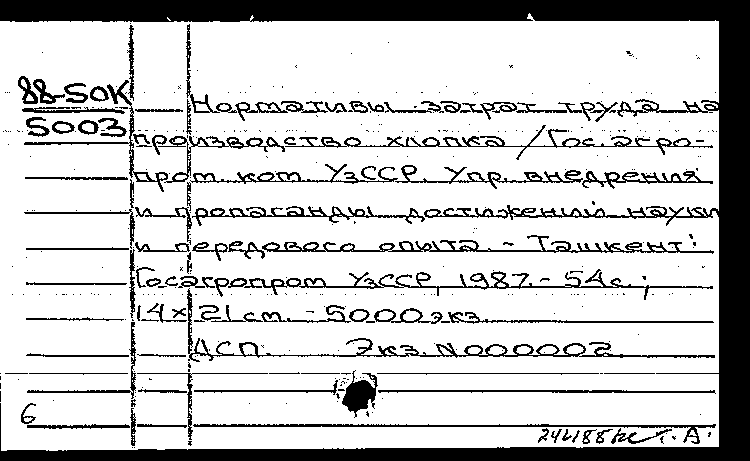 88-50K
5003
Нормативы затрат труда на
производство хлопка / Гос. агро-
пром. ком. УзССР. Упр. внедрения
и пропаганды достижений науки
и передового опыта. - Ташкент:
Госагропром УзССР, 1987. - 54 с.;
14 x 21 см. - 5000 экз.
ДСП. Экз. N000002.
6
Т. А.